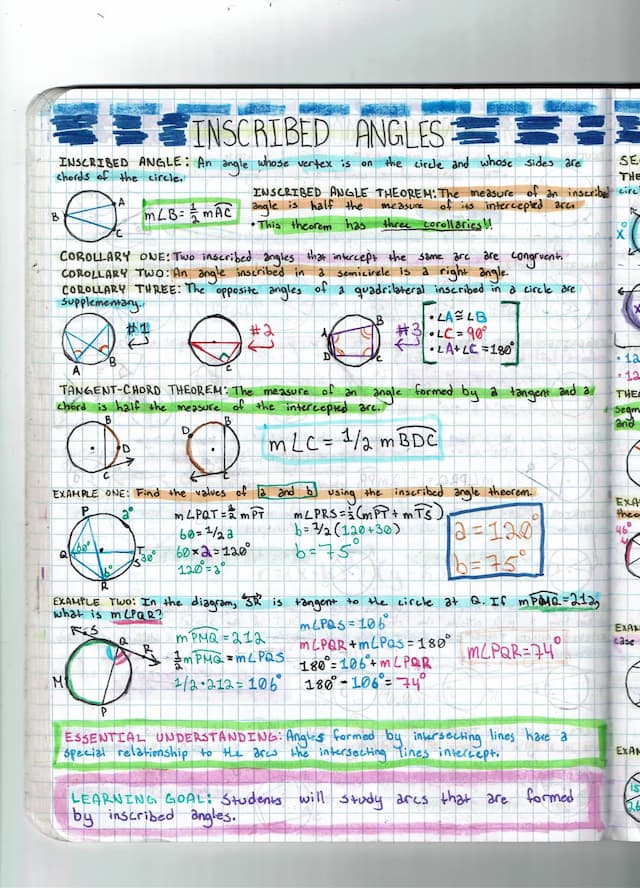 INSCRIBED ANGLES
INSCRIBED ANGLE: An angle whose vertex is on the circle and whose sides are
chords of the circle.
INSCRIBED ANGLE THEOREM: The measure of an inscribed
angle is half the measure of its intercepted arc.
• This theorem has three corollaries!!
A
B
C
m∠B = 1/2 mAC
COROLLARY ONE: Two inscribed angles that intercept the same arc are congruent.
COROLLARY TWO: An angle inscribed in a semicircle is a right angle.
COROLLARY THREE: The opposite angles of a quadrilateral inscribed in a circle are
supplementary.
#1
A
B
#2
C
#3
A
B
D
C
• ∠A ≅ ∠B
• ∠C = 90°
• ∠A + ∠C = 180°
TANGENT-CHORD THEOREM: The measure of an angle formed by a tangent and a
chord is half the measure of the intercepted arc.
B
D
C
B
D
C
m∠C = 1/2 mBDC
EXAMPLE ONE: Find the values of a and b using the inscribed angle theorem.
P
a°
Q
60°
T
30°
S
b°
R
m∠PQT = 1/2 mPT
60 = 1/2 a
60 × 2 = 120°
120° = a°
m∠PRS = 1/2 (mPT + mTS)
b = 1/2 (120 + 30)
b = 75°
a = 120°
b = 75°
EXAMPLE TWO: In the diagram, SR is tangent to the circle at Q. If mPMQ = 212,
what is m∠PQR?
S
Q
R
M
P
mPMQ = 212
1/2 mPMQ = m∠PQS
1/2 · 212 = 106°
m∠PQS = 106°
m∠PQR + m∠PQS = 180°
180° = 106° + m∠PQR
180° - 106° = 74°
m∠PQR = 74°
ESSENTIAL UNDERSTANDING: Angles formed by intersecting lines have a
special relationship to the arcs the intersecting lines intercept.
LEARNING GOAL: Students will study arcs that are formed
by inscribed angles.
SE
THE
circ
X
• 12
• 12
THE
Segm
and
EXA
theo
46°
EXAM
case
EXAM
15
26